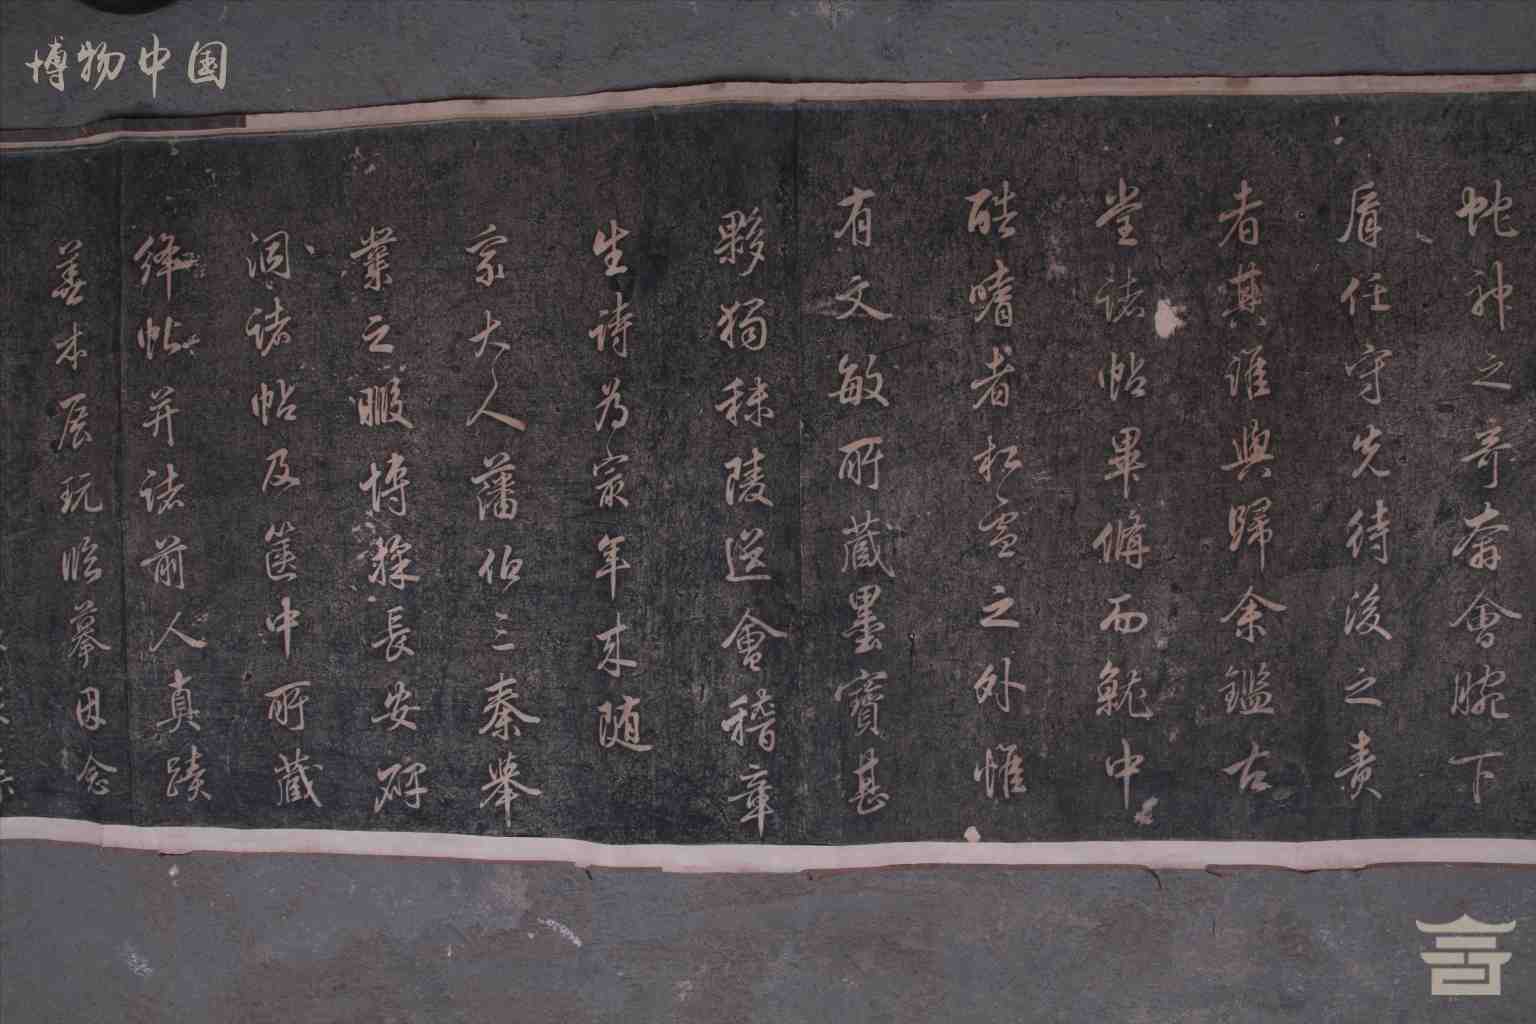 博物中国
蛇神之奇奔會腕下
肩任守先待後之責
者其誰與歸余鑑古
堂諸帖畢備而就中
酷嗜者松雪之外惟
有文敏所藏墨寶甚
夥獨秣陵送會稽章
生詩為最年來随
家大人藩伯三秦舉
業之暇博探長安碑
洞諸帖及篋中所藏
絳帖并諸前人真蹟
善本展玩臨摹因念